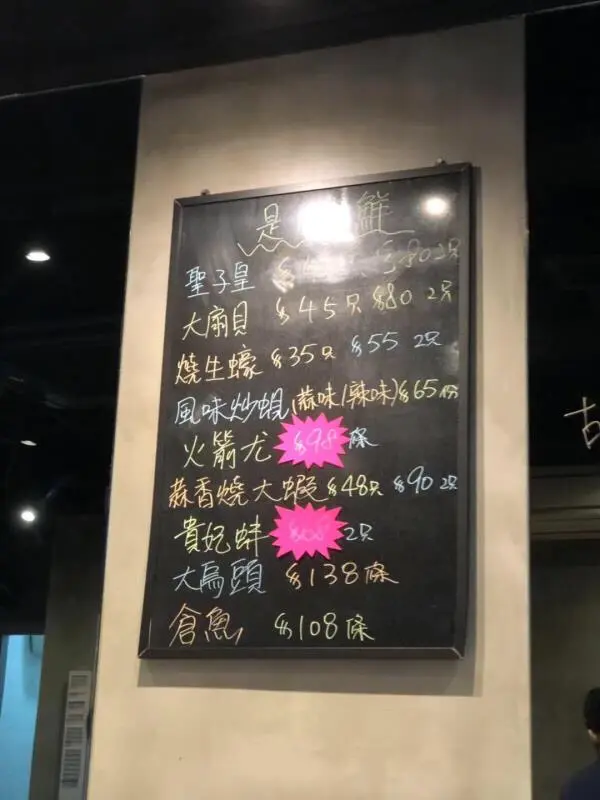 是 鮮
聖子皇 $80 2只
大扇貝 $45只 $80 2只
燒生蠔 $35只 $55 2只
風味炒蜆(蒜味/辣味)$65份
火箭尤 $98 條
蒜香燒大蝦 $48只 $90 2只
貴妃蚌 2只
大烏頭 $138條
倉魚 $108條
古